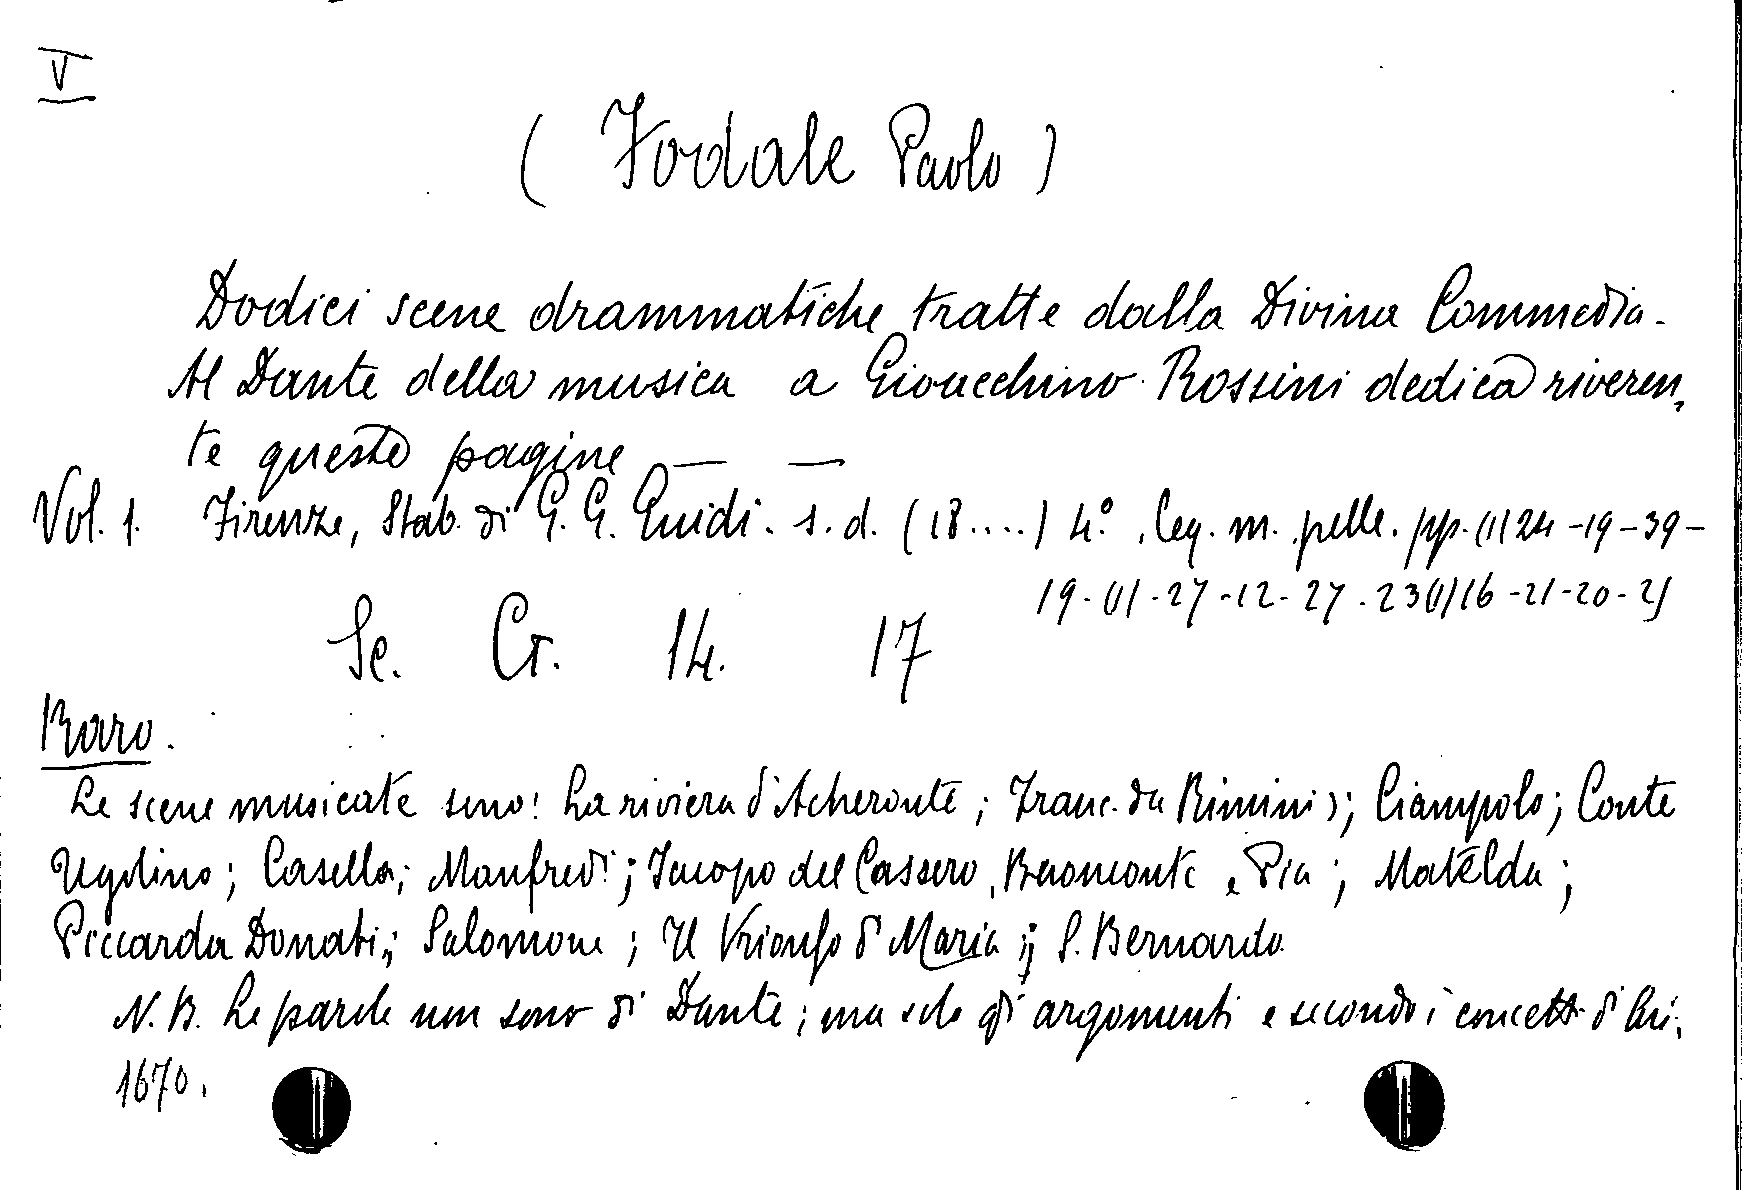 V
( Fodale Paolo )
Dodici scene drammatiche tratte dalla Divina Commedia.
Al Dante della musica a Gioacchino Rossini dedica riveren,
te queste pagine — —
Vol. 1. Firenze, Stab. di G. G. Guidi. s. d. (18....) 4.° Leg. m. pelle. pp. (1) 24 -19 -39 -
19 - (1) - 27 - 12 - 27 - 23 (1) 16 - 21 - 20 - 21
Sc. Cr. 14. 17
Raro.
Le scene musicate sono: La riviera d'Acheronte; Franc. da Rimini; Ciampolo; Conte
Ugolino; Casella; Manfredi; Jacopo del Cassero, Buonconte e Pia; Matelda;
Piccarda Donati; Salomone; Il Trionfo di Maria; S. Bernardo.
N. B. Le parole non sono di Dante; ma solo gli argomenti e secondo i concetti di lui.
1670.